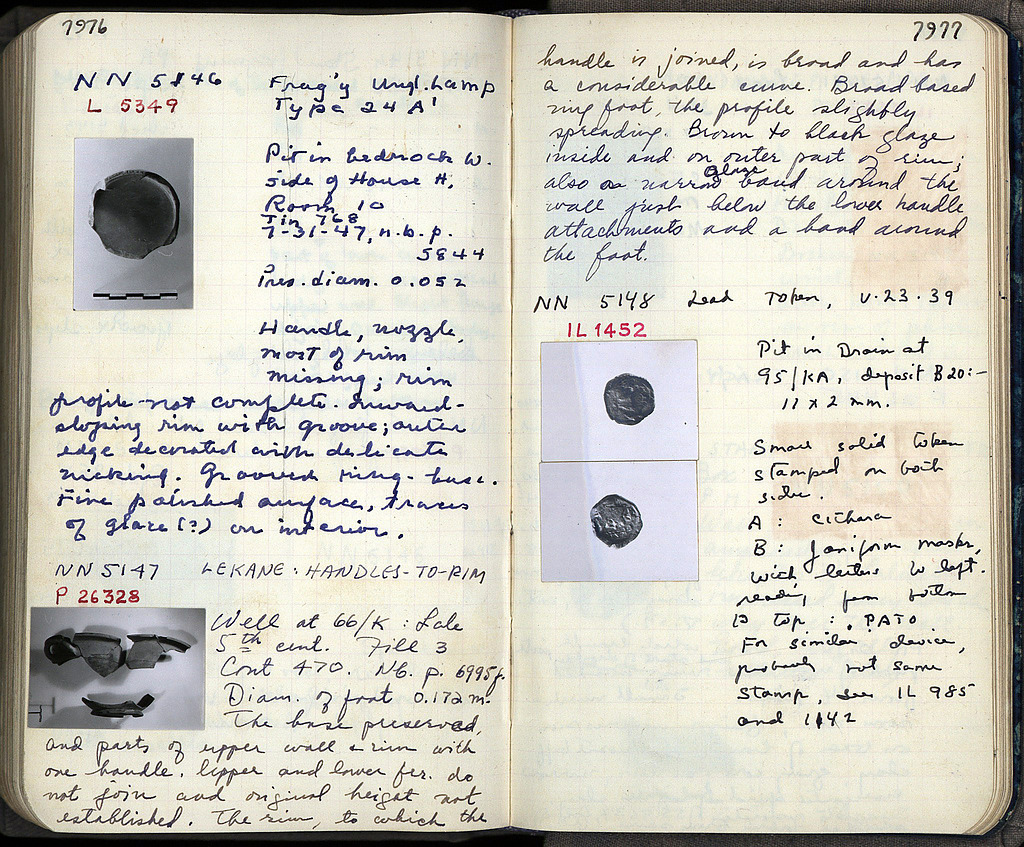 7976
NN 5146
L 5349
Frag'y Ungl. Lamp
Type 24 A'
Pit in bedrock W.
side of House H,
Room 10
Tin 768
7-31-47, n.b. p.
5844
Pres. diam. 0.052
Handle, nozzle,
most of rim
missing; rim
profile not complete. Inward-
sloping rim with groove; outer
edge decorated with delicate
nicking. Grooved ring-base.
Fine polished surface, traces
of glaze (?) on interior.
NN 5147 LEKANE: HANDLES-TO-RIM
P 26328
Well at 66/K : Late
5th cent. Fill 3
Cont 470. NB. p. 6995f.
Diam. of foot 0.172 m.
The base preserved,
and parts of upper wall & rim with
one handle. Upper and lower frr. do
not join and original height not
established. The rim, to which the
7977
handle is joined, is broad and has
a considerable curve. Broad based
ring foot, the profile slightly
spreading. Brown to black glaze
inside and on outer part of rim;
also a narrow glaze band around the
wall just below the lower handle
attachments and a band around
the foot.
NN 5148 Lead Token, V.23.39
IL 1452
Pit in Drain at
95/KA, deposit B 20:-
11 x 2 mm.
Small solid token
stamped on both
side.
A : Cithara
B : Janiform masks,
with letters to left.
reading from bottom
to top : PATO
For similar device,
probably not same
stamp, see IL 985
and 1142